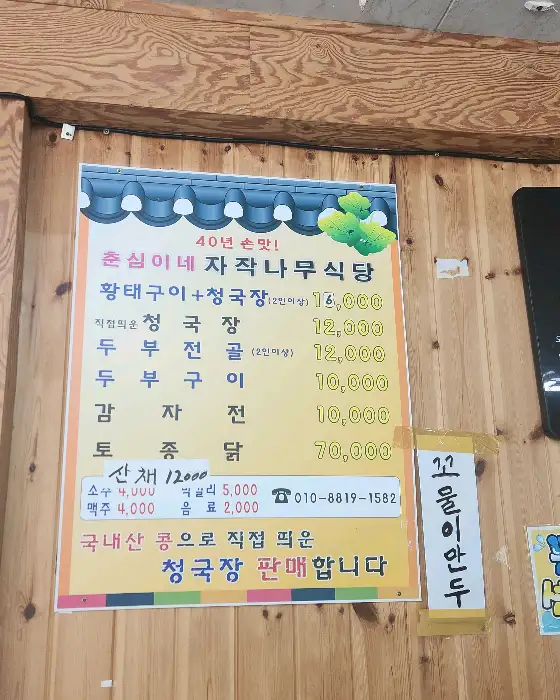 40년 손맛!
춘심이네 자작나무식당
황태구이+청국장(2인이상) 16,000
직접띄운 청국장 12,000
두부전골 (2인이상) 12,000
두부구이 10,000
감자전 10,000
토종닭 70,000
산채 12000
소주 4,000 막걸리 5,000
맥주 4,000 음료 2,000
☎010-8819-1582
국내산 콩으로 직접 띄운
청국장 판매합니다
꼬물이만두